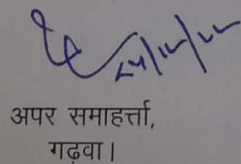 अपर समाहर्त्ता,
गढ़वा।